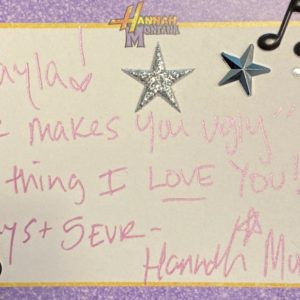 HANNAH
MONTANA
ayla!
makes You ugly"
thing I LOVE You!
ys + 5EVR-
Hannah Mo